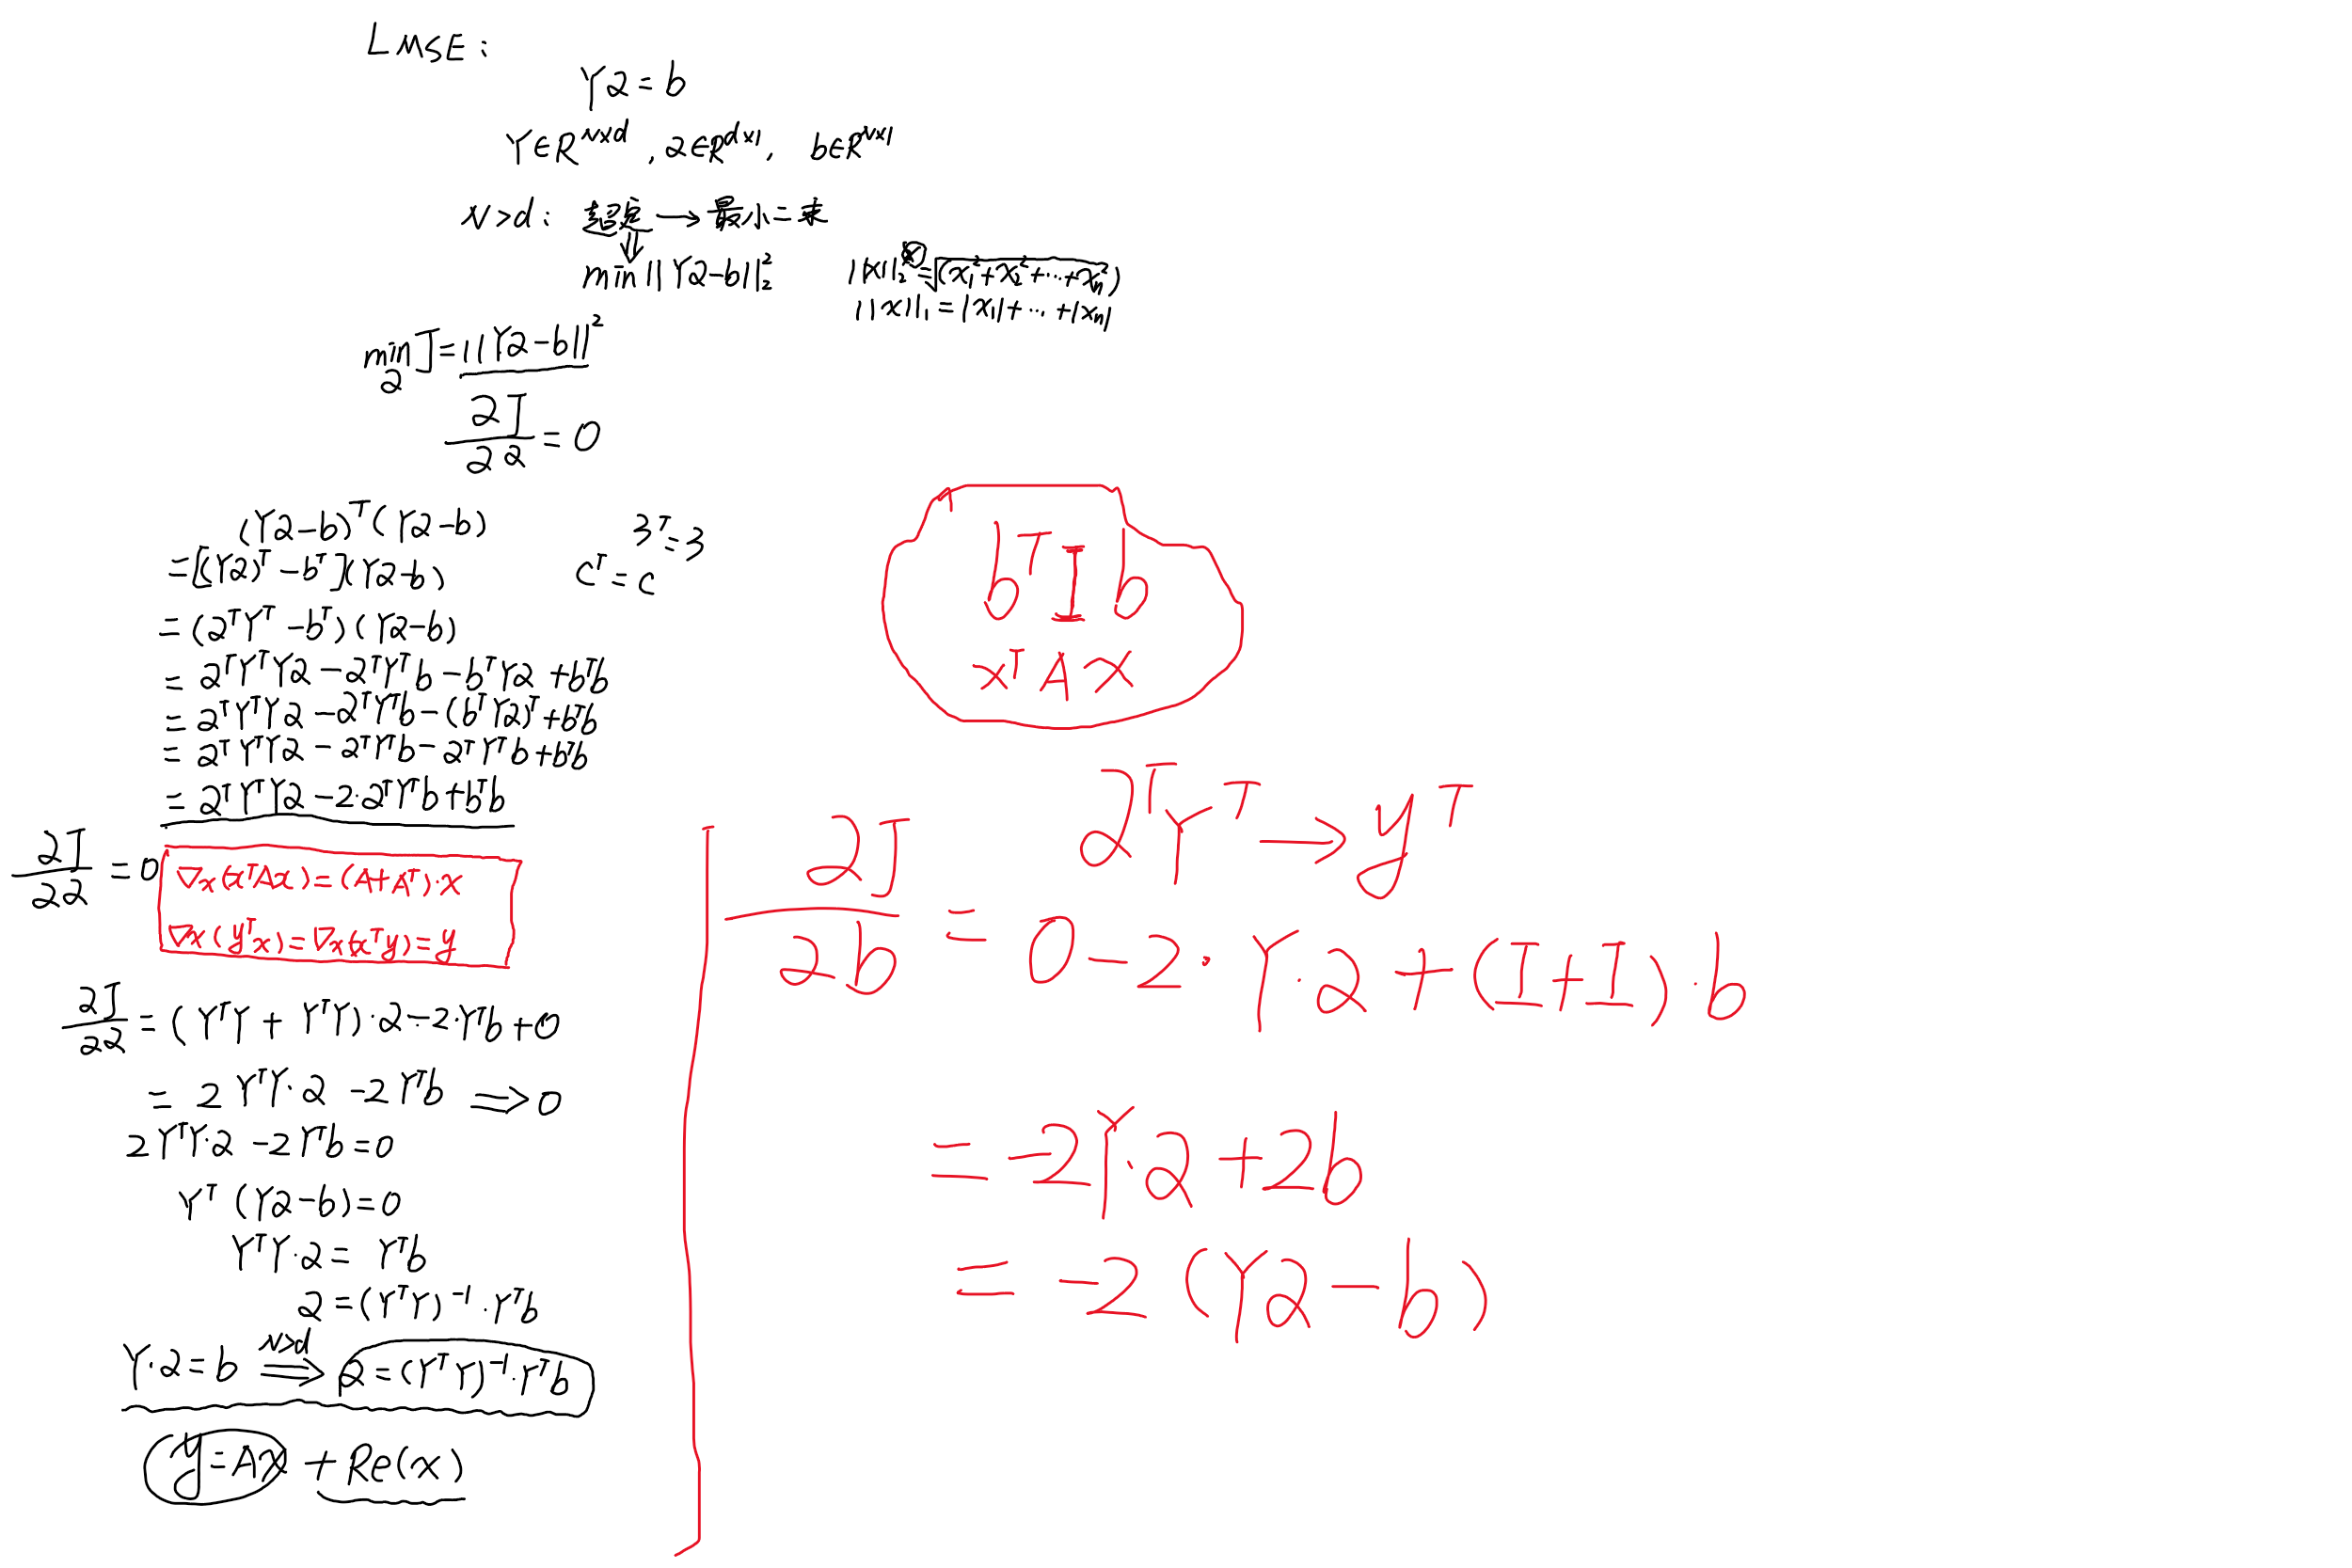 LMSE:
Ya=b
Y∈R^{N×d}, a∈R^{d×1}, b∈R^{N×1}
N>d: 超定→最小二乘
⇓
min||Ya-b||₂²
||x||₂=√(x₁²+x₂²+…+xₙ²)
||x||₁=|x₁|+…+|xₙ|
min_a J=||Ya-b||²
∂J/∂a=0
(Ya-b)^T(Ya-b)
=[(Ya)^T-b^T](Ya-b)
=(a^TY^T-b^T)(Ya-b)
=a^TY^TYa-a^TY^Tb-b^TYa+b^Tb
=a^TY^TYa-a^TY^Tb-(b^TYa)^T+b^Tb
=a^TY^TYa-a^TY^Tb-a^TY^Tb+b^Tb
=a^TY^TYa-2·a^TY^Tb+b^Tb
3^T=3
c^T=c
∂J/∂a=0
∇x(x^TAx)=(A+A^T)·x
∇x(y^Tx)=∇x(x^Ty)=y
∂J/∂a=(Y^TY+Y^TY)·a-2·Y^Tb+0
=2Y^TY·a-2Y^Tb⇒0
2Y^TY·a-2Y^Tb=0
Y^T(Ya-b)=0
Y^TY·a=Y^Tb
a=(Y^TY)^{-1}·Y^Tb
Y·a=b ⇒^{N>d} a=(Y^TY)^{-1}·Y^Tb
y=Ax+Re(x)
b^TIb
x^TAx
a^TY^T→y^T
∂J/∂b=0-2·Y·a+(I+I)·b
=-2Y·a+2b
=-2(Ya-b)